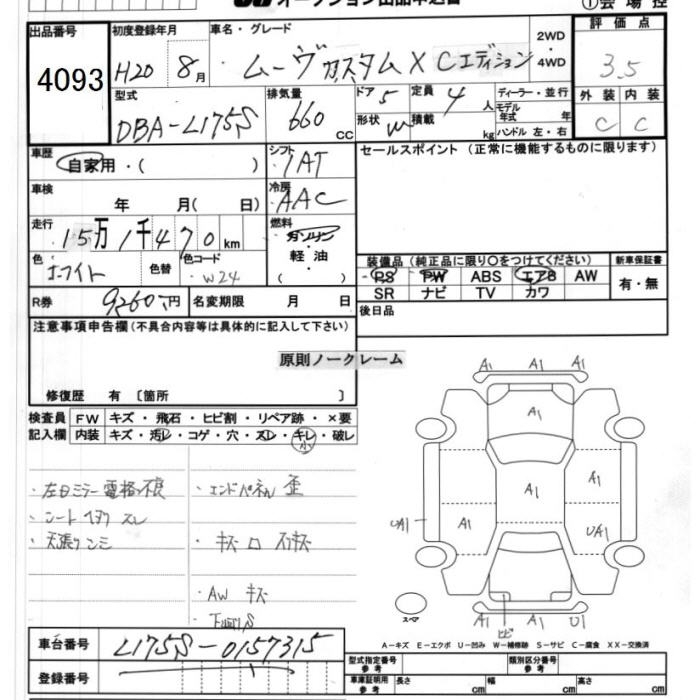 オークション出品申込書
①会場控
出品番号
4093
初度登録年月
H20 8月
車名・グレード
ムーヴカスタム X Cエディション
2WD・4WD
評価点
3.5
型式
DBA-L175S
排気量
660 cc
ドア 5
定員 4人
形状
積載 kg
ディーラー・並行
モデル年式 年
ハンドル 左・右
外装 内装
C C
車歴
自家用・( )
シフト
IAT
セールスポイント (正常に機能するものに限ります)
車検
年 月( 日)
冷房
AAC
走行
15万1千470km
燃料
ガソリン・軽油
( )
色
ホワイト
色替
色コード
W24
装備品 (純正品に限り〇をつけてください)
新車保証書
PS PW ABS エアB AW
SR ナビ TV カワ
有・無
R券 9260円
名変期限 月 日
後日品
注意事項申告欄(不具合内容等は具体的に記入して下さい)
原則ノークレーム
修復歴 有 〔箇所 〕
検査員記入欄
FW キズ・飛石・ヒビ割・リペア跡・×要
内装 キズ・汚レ・コゲ・穴・スレ・キレ・破レ
小
・左日ミラー電格不良
・シート スレ
・天張り
・エンドパネル 歪
・キズ
・AW キズ
A1 A1 A1
A1
A1 A1
UA1 A1 UA1
A1 A1 U1
ヒビ
スペア
A-キズ E-エクボ U-凹み W-補修跡 S-サビ C-腐食 XX-交換済
車台番号 L175S-0157315
登録番号
型式指定番号 参考
類別区分番号 参考
車庫証明用 参考 長さ cm 幅 cm 高さ cm